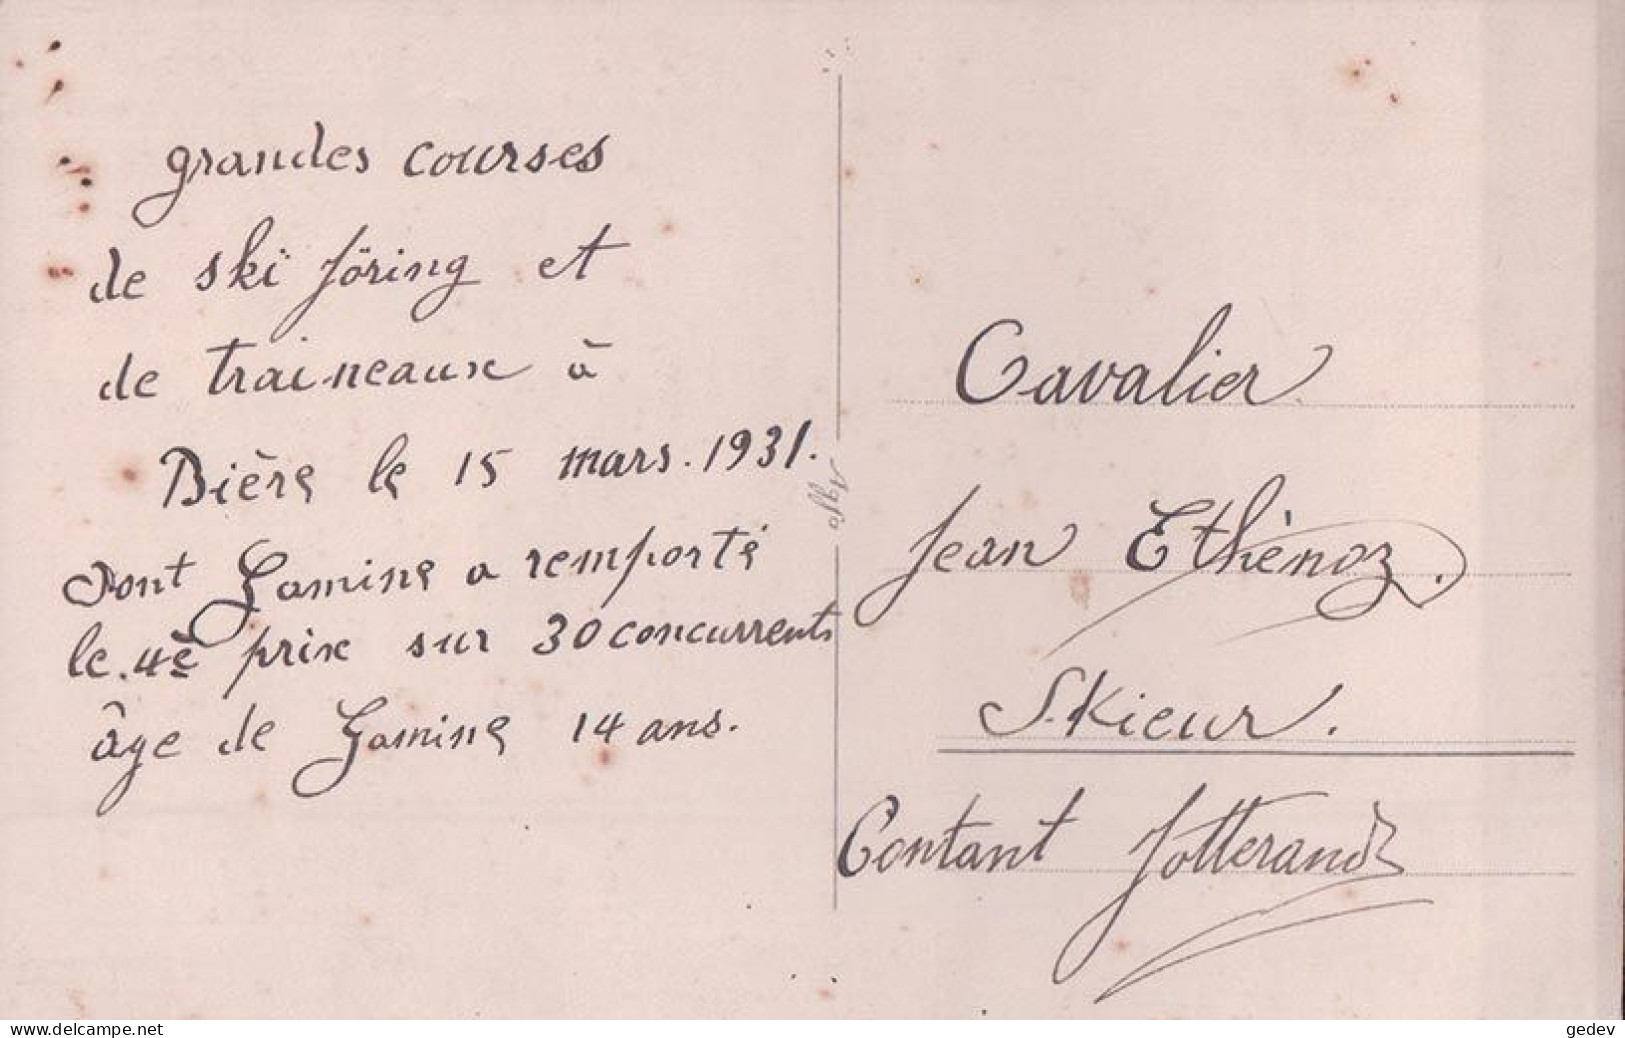 grandes courses
de ski jöring et
de traineaux à
Bière le 15 mars. 1931.
dont Gamine a remporté
le. 4è prix sur 30 concurrents
âge de Gamine 14 ans.
Cavalier
Jean Ethénoz.
Skieur.
Contant Jotterand
www.delcampe.net
gedev